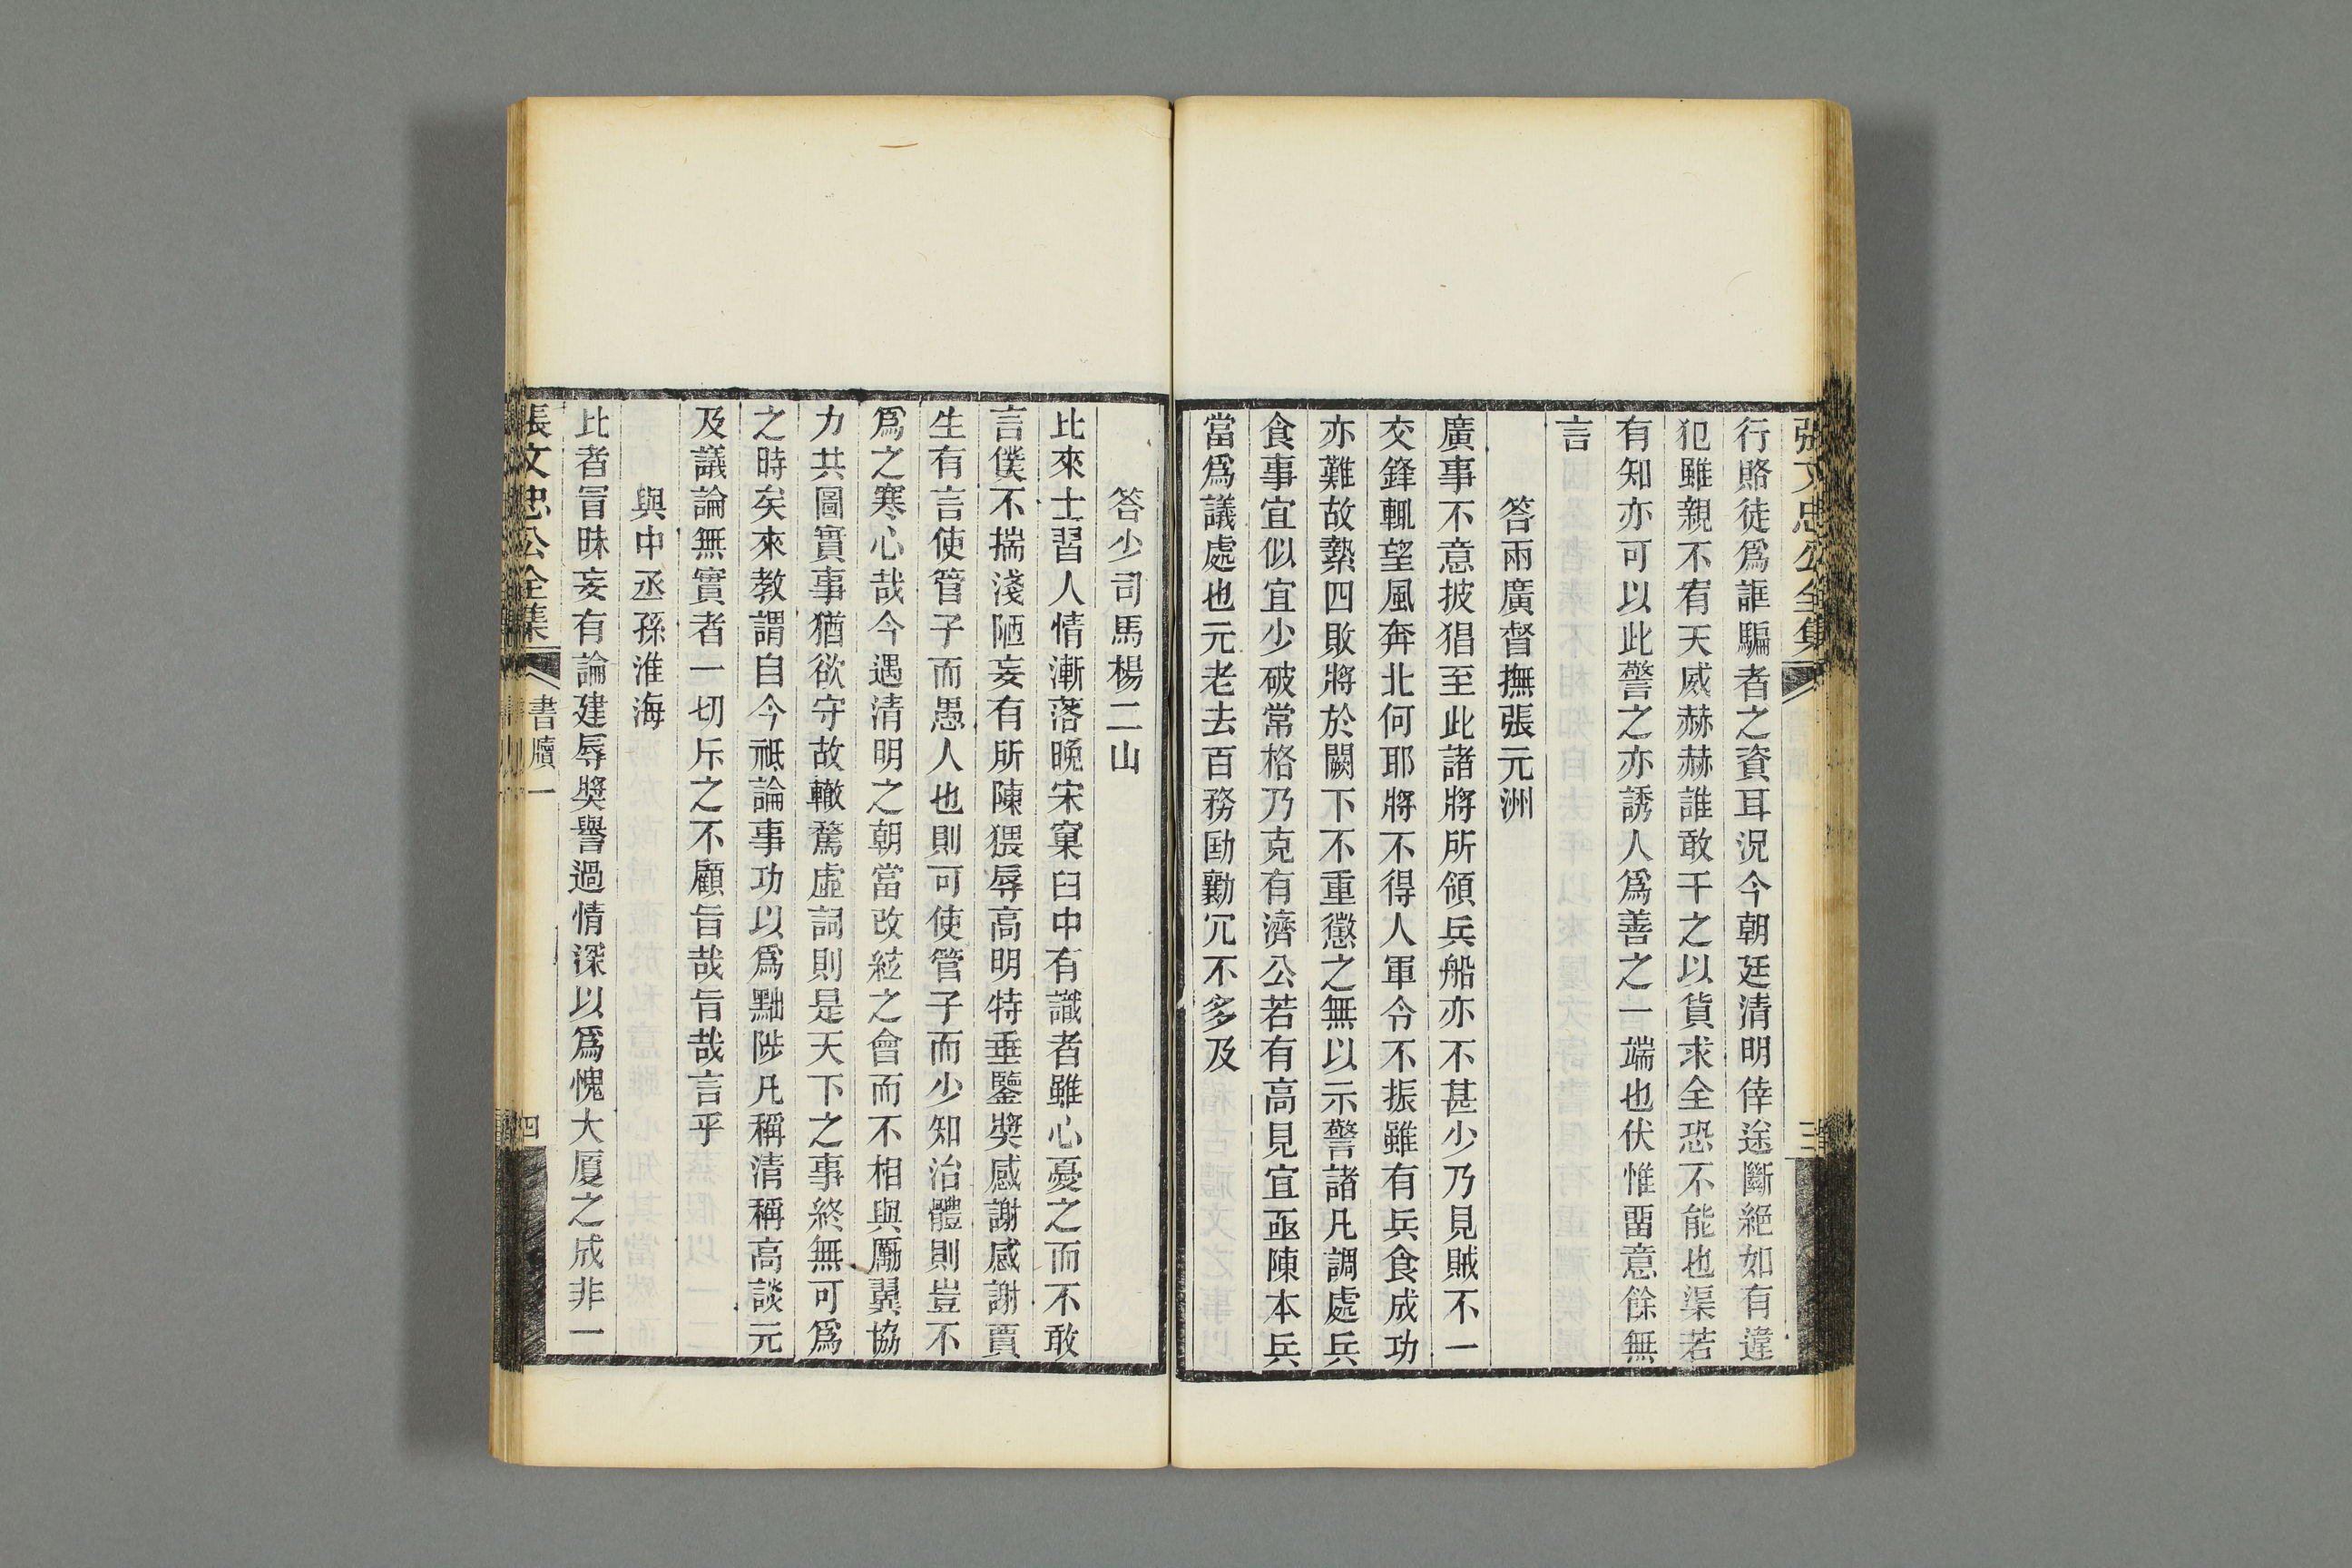 張文忠公全集
三
行賂徒爲誆騙者之資耳況今朝廷清明倖途斷絕如有違
犯雖親不宥天威赫赫誰敢干之以貨求全恐不能也渠若
有知亦可以此警之亦誘人爲善之一端也伏惟畱意餘無
言
答兩廣督撫張元洲
廣事不意披猖至此諸將所領兵船亦不甚少乃見賊不一
交鋒輒望風奔北何耶將不得人軍令不振雖有兵食成功
亦難故縶四敗將於闕下不重懲之無以示警諸凡調處兵
食事宜似宜少破常格乃克有濟公若有高見宜亟陳本兵
當爲議處也元老去百務劻勷冗不多及
答少司馬楊二山
比來士習人情漸落晚宋窠臼中有識者雖心憂之而不敢
言僕不揣淺陋妄有所陳猥辱高明特垂鑒奬感謝感謝賈
生有言使管子而愚人也則可使管子而少知治體則豈不
爲之寒心哉今遇清明之朝當改絃之會而不相與勵翼協
力共圖實事猶欲守故轍騖虛詞則是天下之事終無可爲
之時矣來教謂自今祗論事功以爲黜陟凡稱清稱高談元
及議論無實者一切斥之不顧旨哉旨哉言乎
與中丞孫淮海
比者冒昧妄有論建辱奬譽過情深以爲愧大厦之成非一
張文忠公全集
書牘一
四